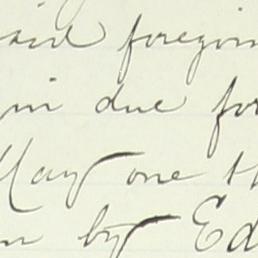 said foregoin
in due for
May one th
n by Ed